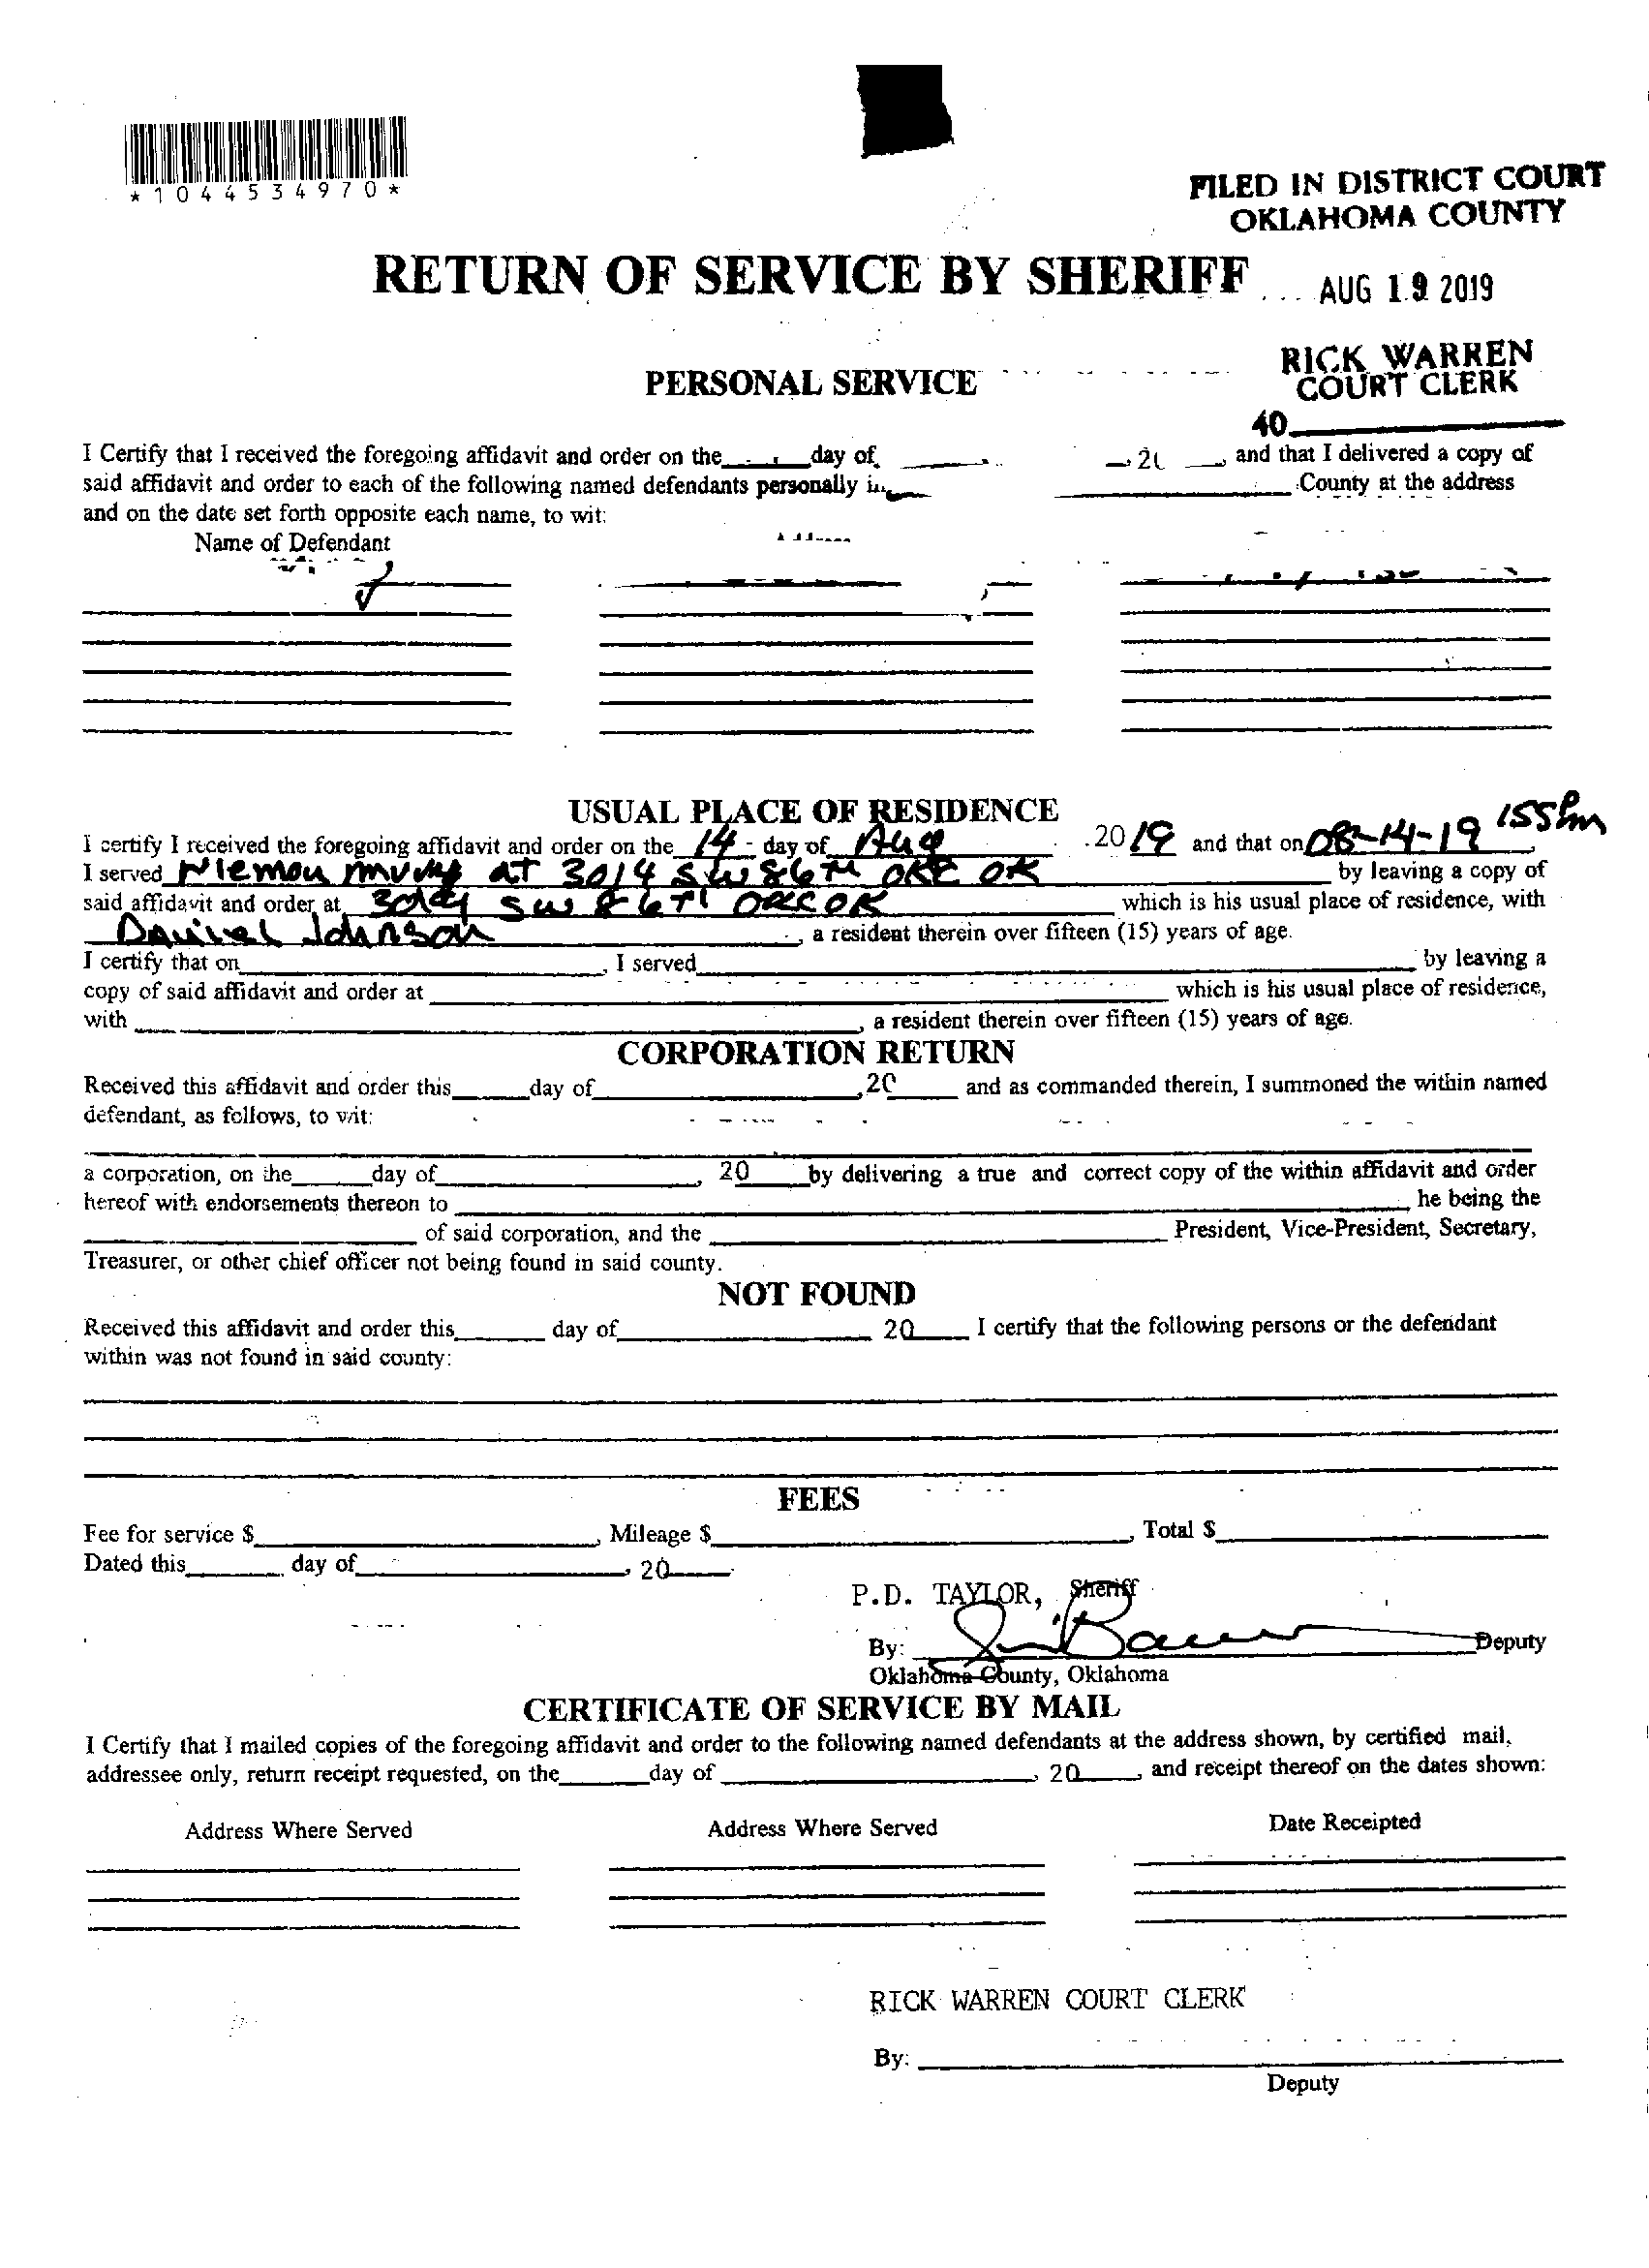 *1044534970*
FILED IN DISTRICT COURT
OKLAHOMA COUNTY
RETURN OF SERVICE BY SHERIFF
AUG 19 2019
RICK WARREN
COURT CLERK
PERSONAL SERVICE
40
I Certify that I received the foregoing affidavit and order on the day of , 20 , and that I delivered a copy of
said affidavit and order to each of the following named defendants personally in County at the address
and on the date set forth opposite each name, to wit:
Name of Defendant
USUAL PLACE OF RESIDENCE
I certify I received the foregoing affidavit and order on the 14 day of Aug 2019 and that on 08-14-19 155Pm
I served at 3014 SW 86TH OKC OK by leaving a copy of
said affidavit and order at 3014 SW 86TH OKC OK which is his usual place of residence, with
Daniel Johnson, a resident therein over fifteen (15) years of age.
I certify that on , I served by leaving a
copy of said affidavit and order at which is his usual place of residence,
with , a resident therein over fifteen (15) years of age.
CORPORATION RETURN
Received this affidavit and order this day of , 20 and as commanded therein, I summoned the within named
defendant, as follows, to wit:
a corporation, on the day of , 20 by delivering a true and correct copy of the within affidavit and order
hereof with endorsements thereon to , he being the
of said corporation, and the President, Vice-President, Secretary,
Treasurer, or other chief officer not being found in said county.
NOT FOUND
Received this affidavit and order this day of 20 I certify that the following persons or the defendant
within was not found in said county:
FEES
Fee for service $ , Mileage $ , Total $
Dated this day of , 20
P.D. TAYLOR, Sheriff
By: Deputy
Oklahoma County, Oklahoma
CERTIFICATE OF SERVICE BY MAIL
I Certify that I mailed copies of the foregoing affidavit and order to the following named defendants at the address shown, by certified mail,
addressee only, return receipt requested, on the day of , 20 , and receipt thereof on the dates shown:
Address Where Served Address Where Served Date Receipted
RICK WARREN COURT CLERK
By:
Deputy